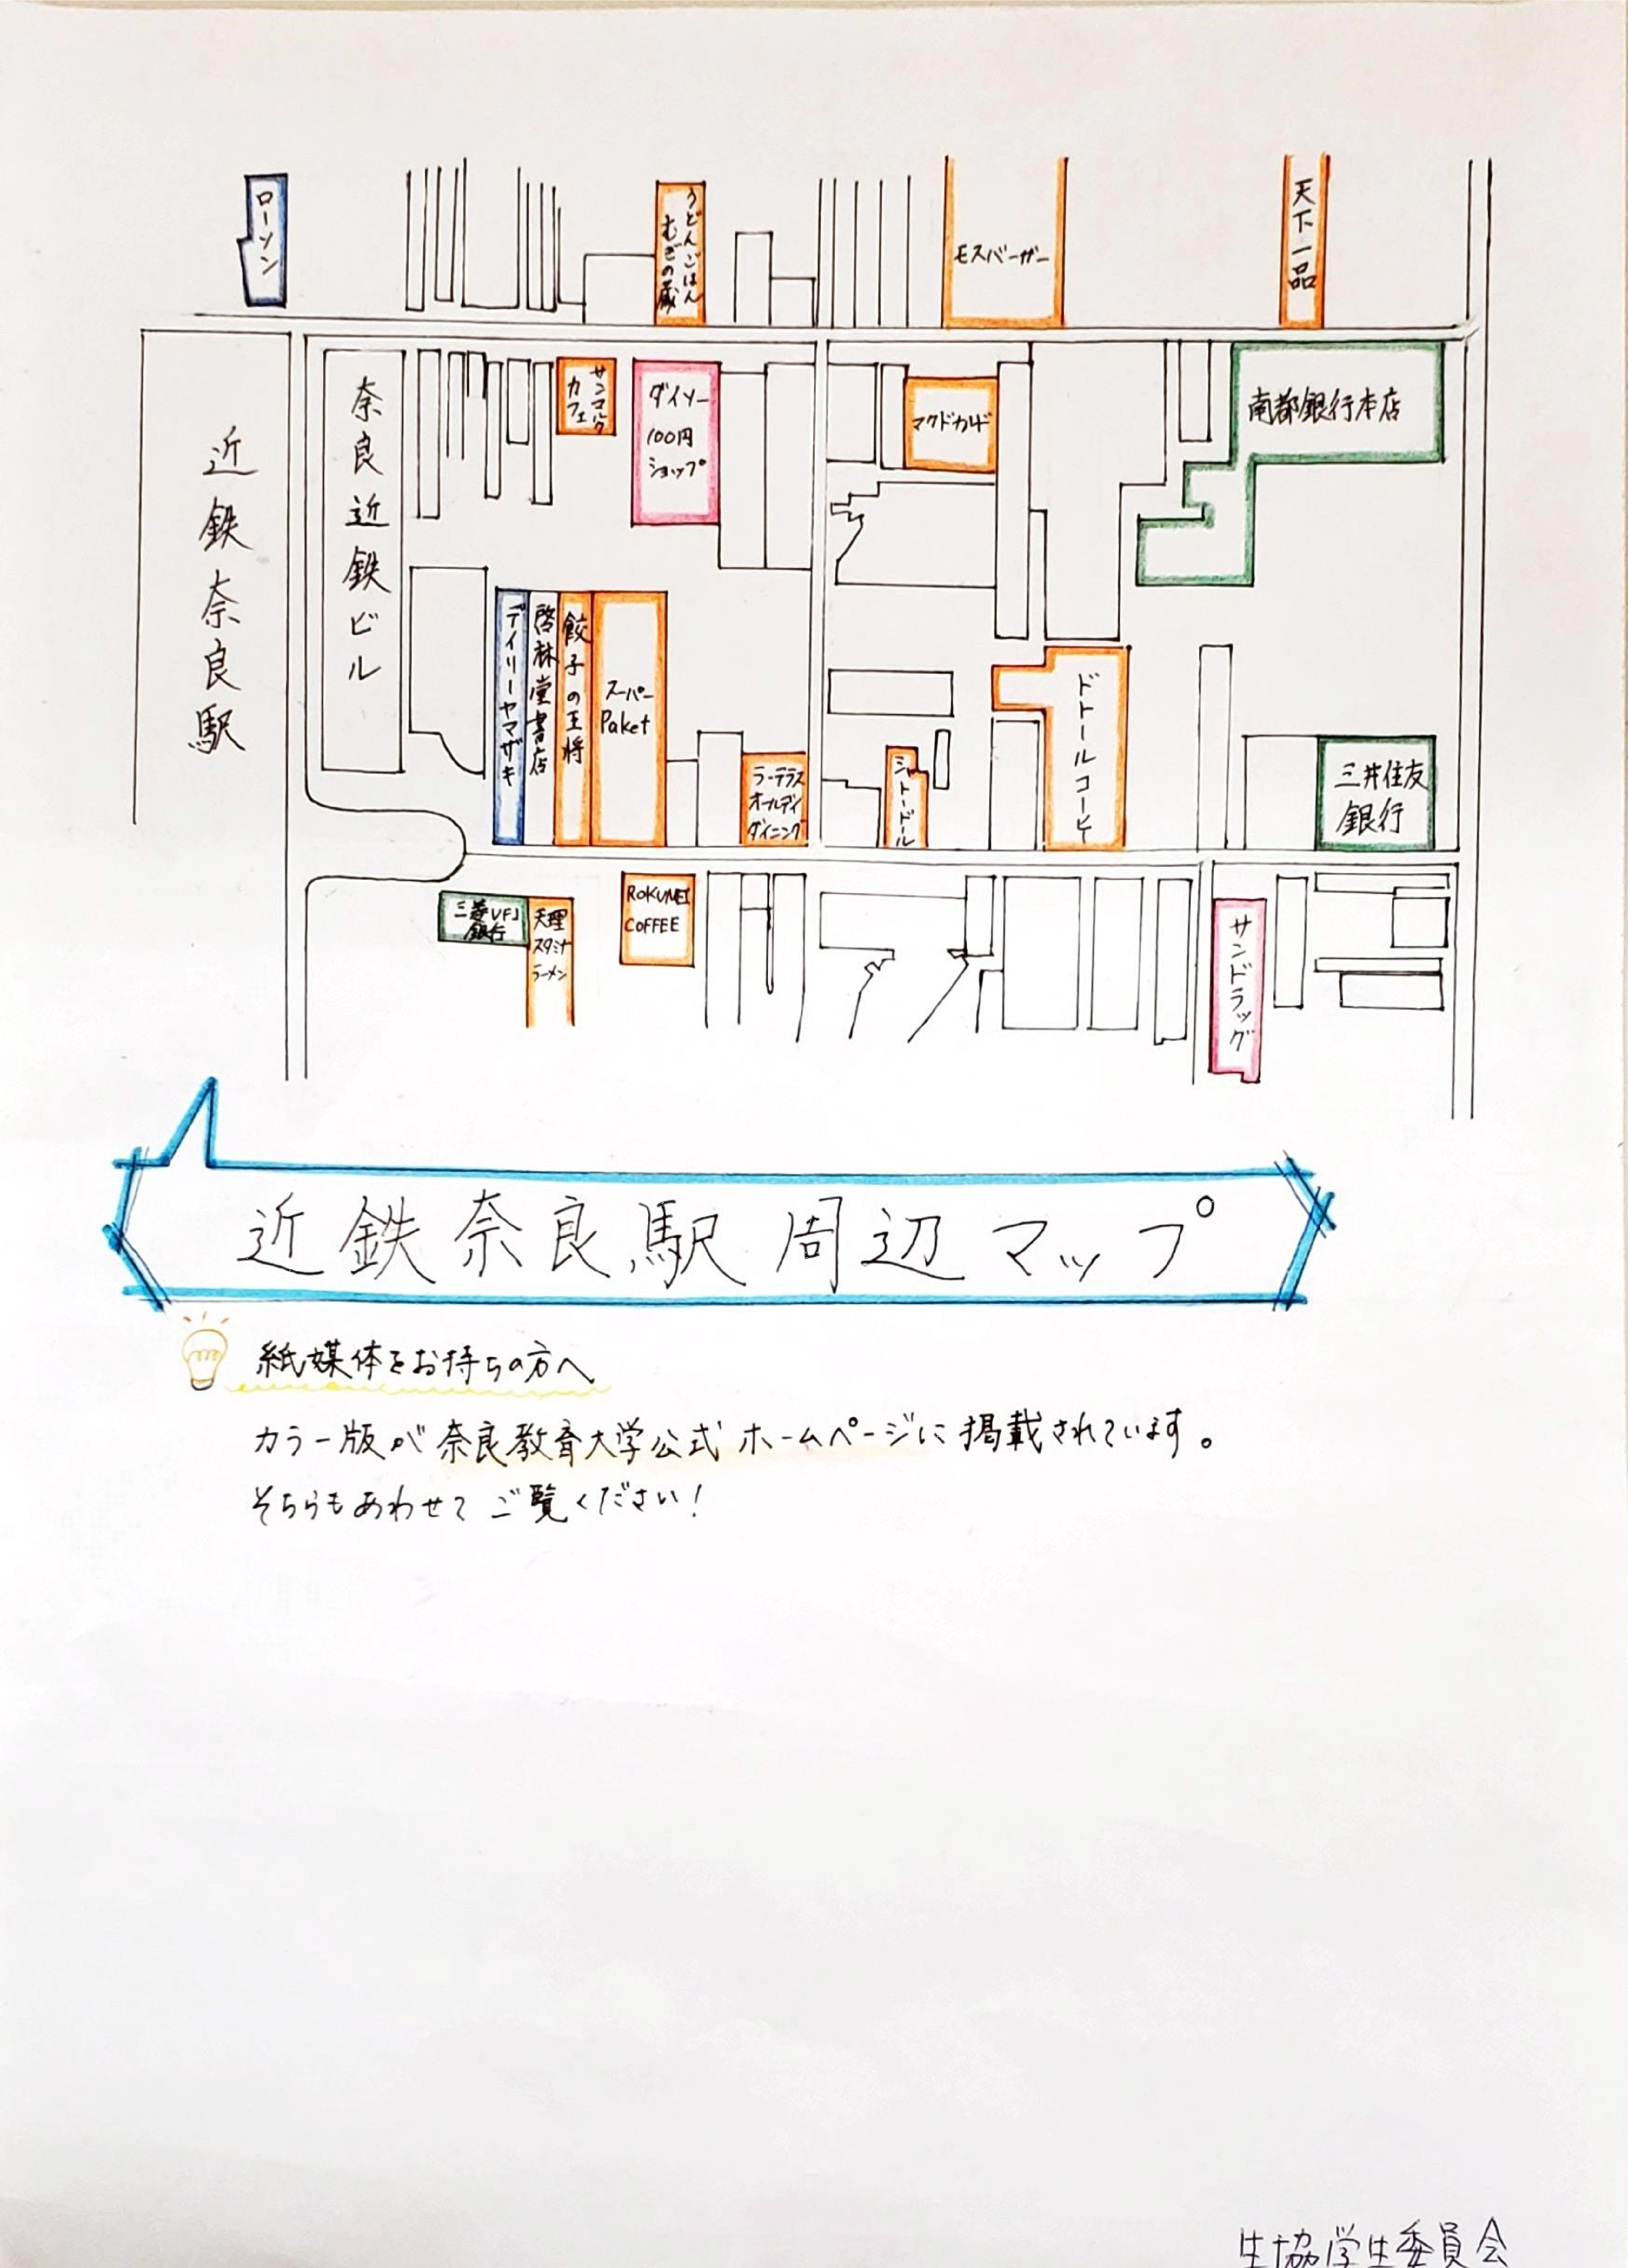 ローソン
うどんごはん
むぎの蔵
モスバーガー
天下一品
近鉄奈良駅
奈良近鉄ビル
サンマルク
カフェ
ダイソー
100円
ショップ
マクドナルド
南都銀行本店
デイリーヤマザキ
啓林堂書店
餃子の王将
スーパー
Paket
ラ・テラス
オールデイ
ダイニング
シャトードール
ドトールコーヒー
三井住友
銀行
三菱UFJ
銀行
天理
スタミナ
ラーメン
ROKUMEI
COFFEE
サンドラッグ
近鉄奈良駅周辺マップ
紙媒体をお持ちの方へ
カラー版が奈良教育大学公式ホームページに掲載されています。
そちらもあわせてご覧ください!
生協学生委員会